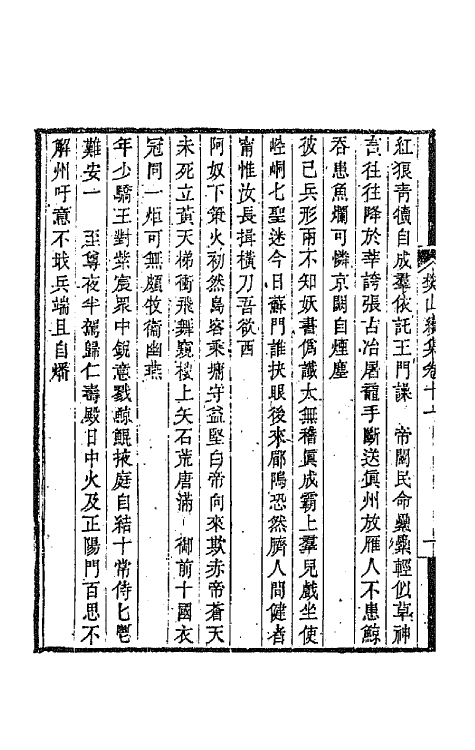 樊山續集卷十一
紅狼青犢自成羣依託王門謀　帝閽民命纍纍輕似草神
言往往降於莘誇張占冶屠龍手斷送眞州放雁人不患鯨
吞患魚爛可憐京闕自煙塵
彼己兵形兩不知妖書僞讖太無稽眞成霸上羣兒戲坐使
崆峒七聖迷今日蘇門誰抉眼後來郿隖恐然臍人間健者
甯惟汝長揖橫刀吾欲西
阿奴下策火初然島客乘墉守益堅白帝向來欺赤帝蒼天
未死立黃天梯衝飛舞窺樓上矢石荒唐滿　御前十國衣
冠同一炬可無頗牧衞幽燕
年少驕王對紫宸衆中銳意戮鯨鯤掖庭自結十常侍匕鬯
難安一　至尊夜半駕歸仁壽殿日中火及正陽門百思不
解州吁意不戢兵端且自燔